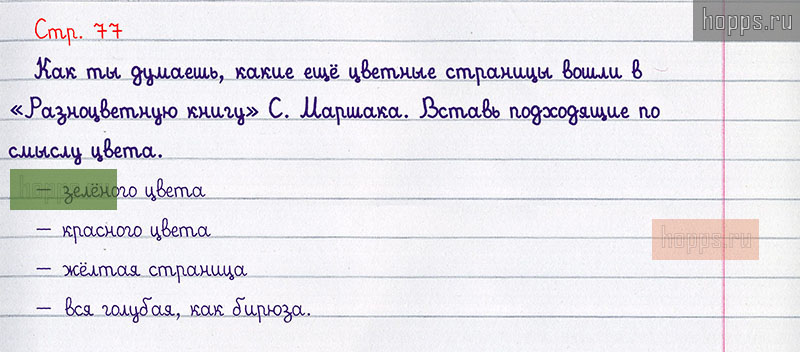 hopps.ru
Стр. 77
Как ты думаешь, какие ещё цветные страницы вошли в
«Разноцветную книгу» С. Маршака. Вставь подходящие по
смыслу цвета.
hopps.ru
– зелёного цвета
– красного цвета
hopps.ru
– жёлтая страница
– вся голубая, как бирюза.